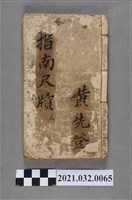 指南尺牘
上
黃先登
2021.032.0065